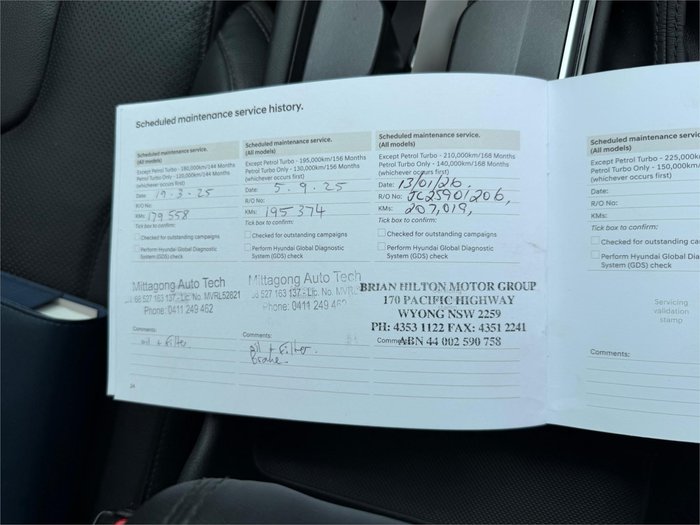 Scheduled maintenance service history.
Scheduled maintenance service.
(All models)
Except Petrol Turbo - 180,000km/144 Months
Petrol Turbo Only - 120,000km/144 Months
(whichever occurs first)
Date: 19.3.25
R/O No:
KMs: 179 558
Tick box to confirm:
Checked for outstanding campaigns
Perform Hyundai Global Diagnostic
System (GDS) check
Mittagong Auto Tech
68 527 163 137 - Lic. No. MVRL52621
Phone: 0411 249 462
Comments:
oil + Filter
24
Scheduled maintenance service.
(All models)
Except Petrol Turbo - 195,000km/156 Months
Petrol Turbo Only - 130,000km/156 Months
(whichever occurs first)
Date: 5.9.25
R/O No:
KMs: 195 374
Tick box to confirm:
Checked for outstanding campaigns
Perform Hyundai Global Diagnostic
System (GDS) check
Mittagong Auto Tech
527 163 137 - Lic. No. MVRL
Phone: 0411 249 462
Comments:
oil + Filter.
Brake.
Scheduled maintenance service.
(All models)
Except Petrol Turbo - 210,000km/168 Months
Petrol Turbo Only - 140,000km/168 Months
(whichever occurs first)
Date: 13/01/26.
R/O No: JC25901206,
KMs: 207,019,
Tick box to confirm:
Checked for outstanding campaigns
Perform Hyundai Global Diagnostic
System (GDS) check
BRIAN HILTON MOTOR GROUP
170 PACIFIC HIGHWAY
WYONG NSW 2259
PH: 4353 1122 FAX: 4351 2241
ABN 44 002 590 758
Scheduled maintenance
(All models)
Except Petrol Turbo - 225,000k
Petrol Turbo Only - 150,000
(whichever occurs first)
Date:
R/O No:
KMs:
Tick box to confirm:
Checked for outstanding ca
Perform Hyundai Global D
System (GDS) check
Servicing
validation
stamp
Comments: